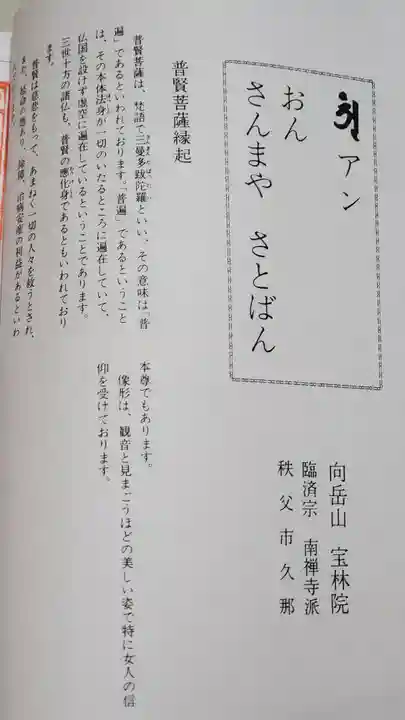 アン
おん
さんまや さとばん
向岳山 宝林院
臨済宗 南禅寺派
秩父市久那
普賢菩薩縁起
普賢菩薩は、梵語で三曼多跋陀羅といい、その意味は「普
遍」であるといわれております。「普遍」であるということ
は、その本体法身が一切のいたるところに遍在していて、
仏国を設けず虚空に遍在しているということであります。
三世十方の諸仏も、普賢の應化身であるともいわれており
ます。
普賢は慈悲をもって、あまねく一切の人々を救うとされ、
また、延命の徳あり、除障、治病安産の利益があるといわ
本尊でもあります。
像形は、観音と見まごうほどの美しい姿で特に女人の信
仰を受けております。